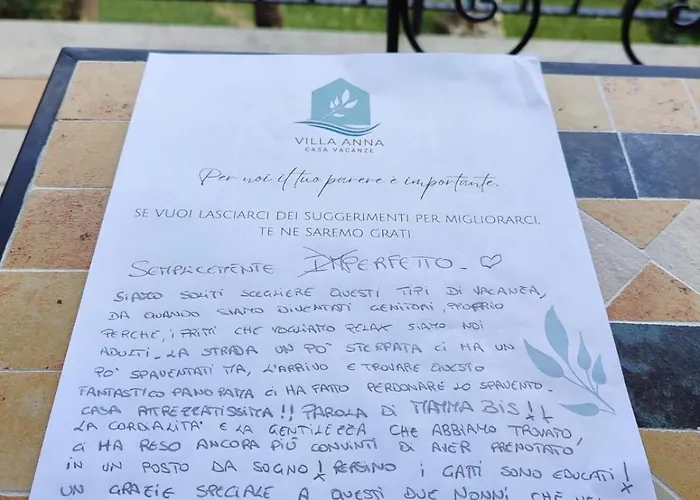 VILLA ANNA
CASA VACANZE
Per noi il tuo parere è importante.
SE VUOI LASCIARCI DEI SUGGERIMENTI PER MIGLIORARCI,
TE NE SAREMO GRATI
SEMPLICEMENTE IMPERFETTO. ♡
SIAMO SOLITI SCEGLIERE QUESTI TIPI DI VACANZA,
DA QUANDO SIAMO DIVENTATI GENITORI, PROPRIO
PERCHÈ, I PRIMI CHE VOGLIAMO RELAX SIAMO NOI
ADULTI. LA STRADA UN PO' STERPATA CI HA UN
PO' SPAVENTATI MA, L'ARRIVO E TROVARE QUESTO
FANTASTICO PANORAMA CI HA FATTO PERDONARE LO SPAVENTO.
CASA ATTREZZATISSIMA!! PAROLA DI MAMMA BIS!!
LA CORDIALITÀ E LA GENTILEZZA CHE ABBIAMO TROVATO,
CI HA RESO ANCORA PIÙ CONVINTI DI AVER PRENOTATO
IN UN POSTO DA SOGNO! PERSINO I GATTI SONO EDUCATI!
UN GRAZIE SPECIALE A QUESTI DUE NONNI CHE